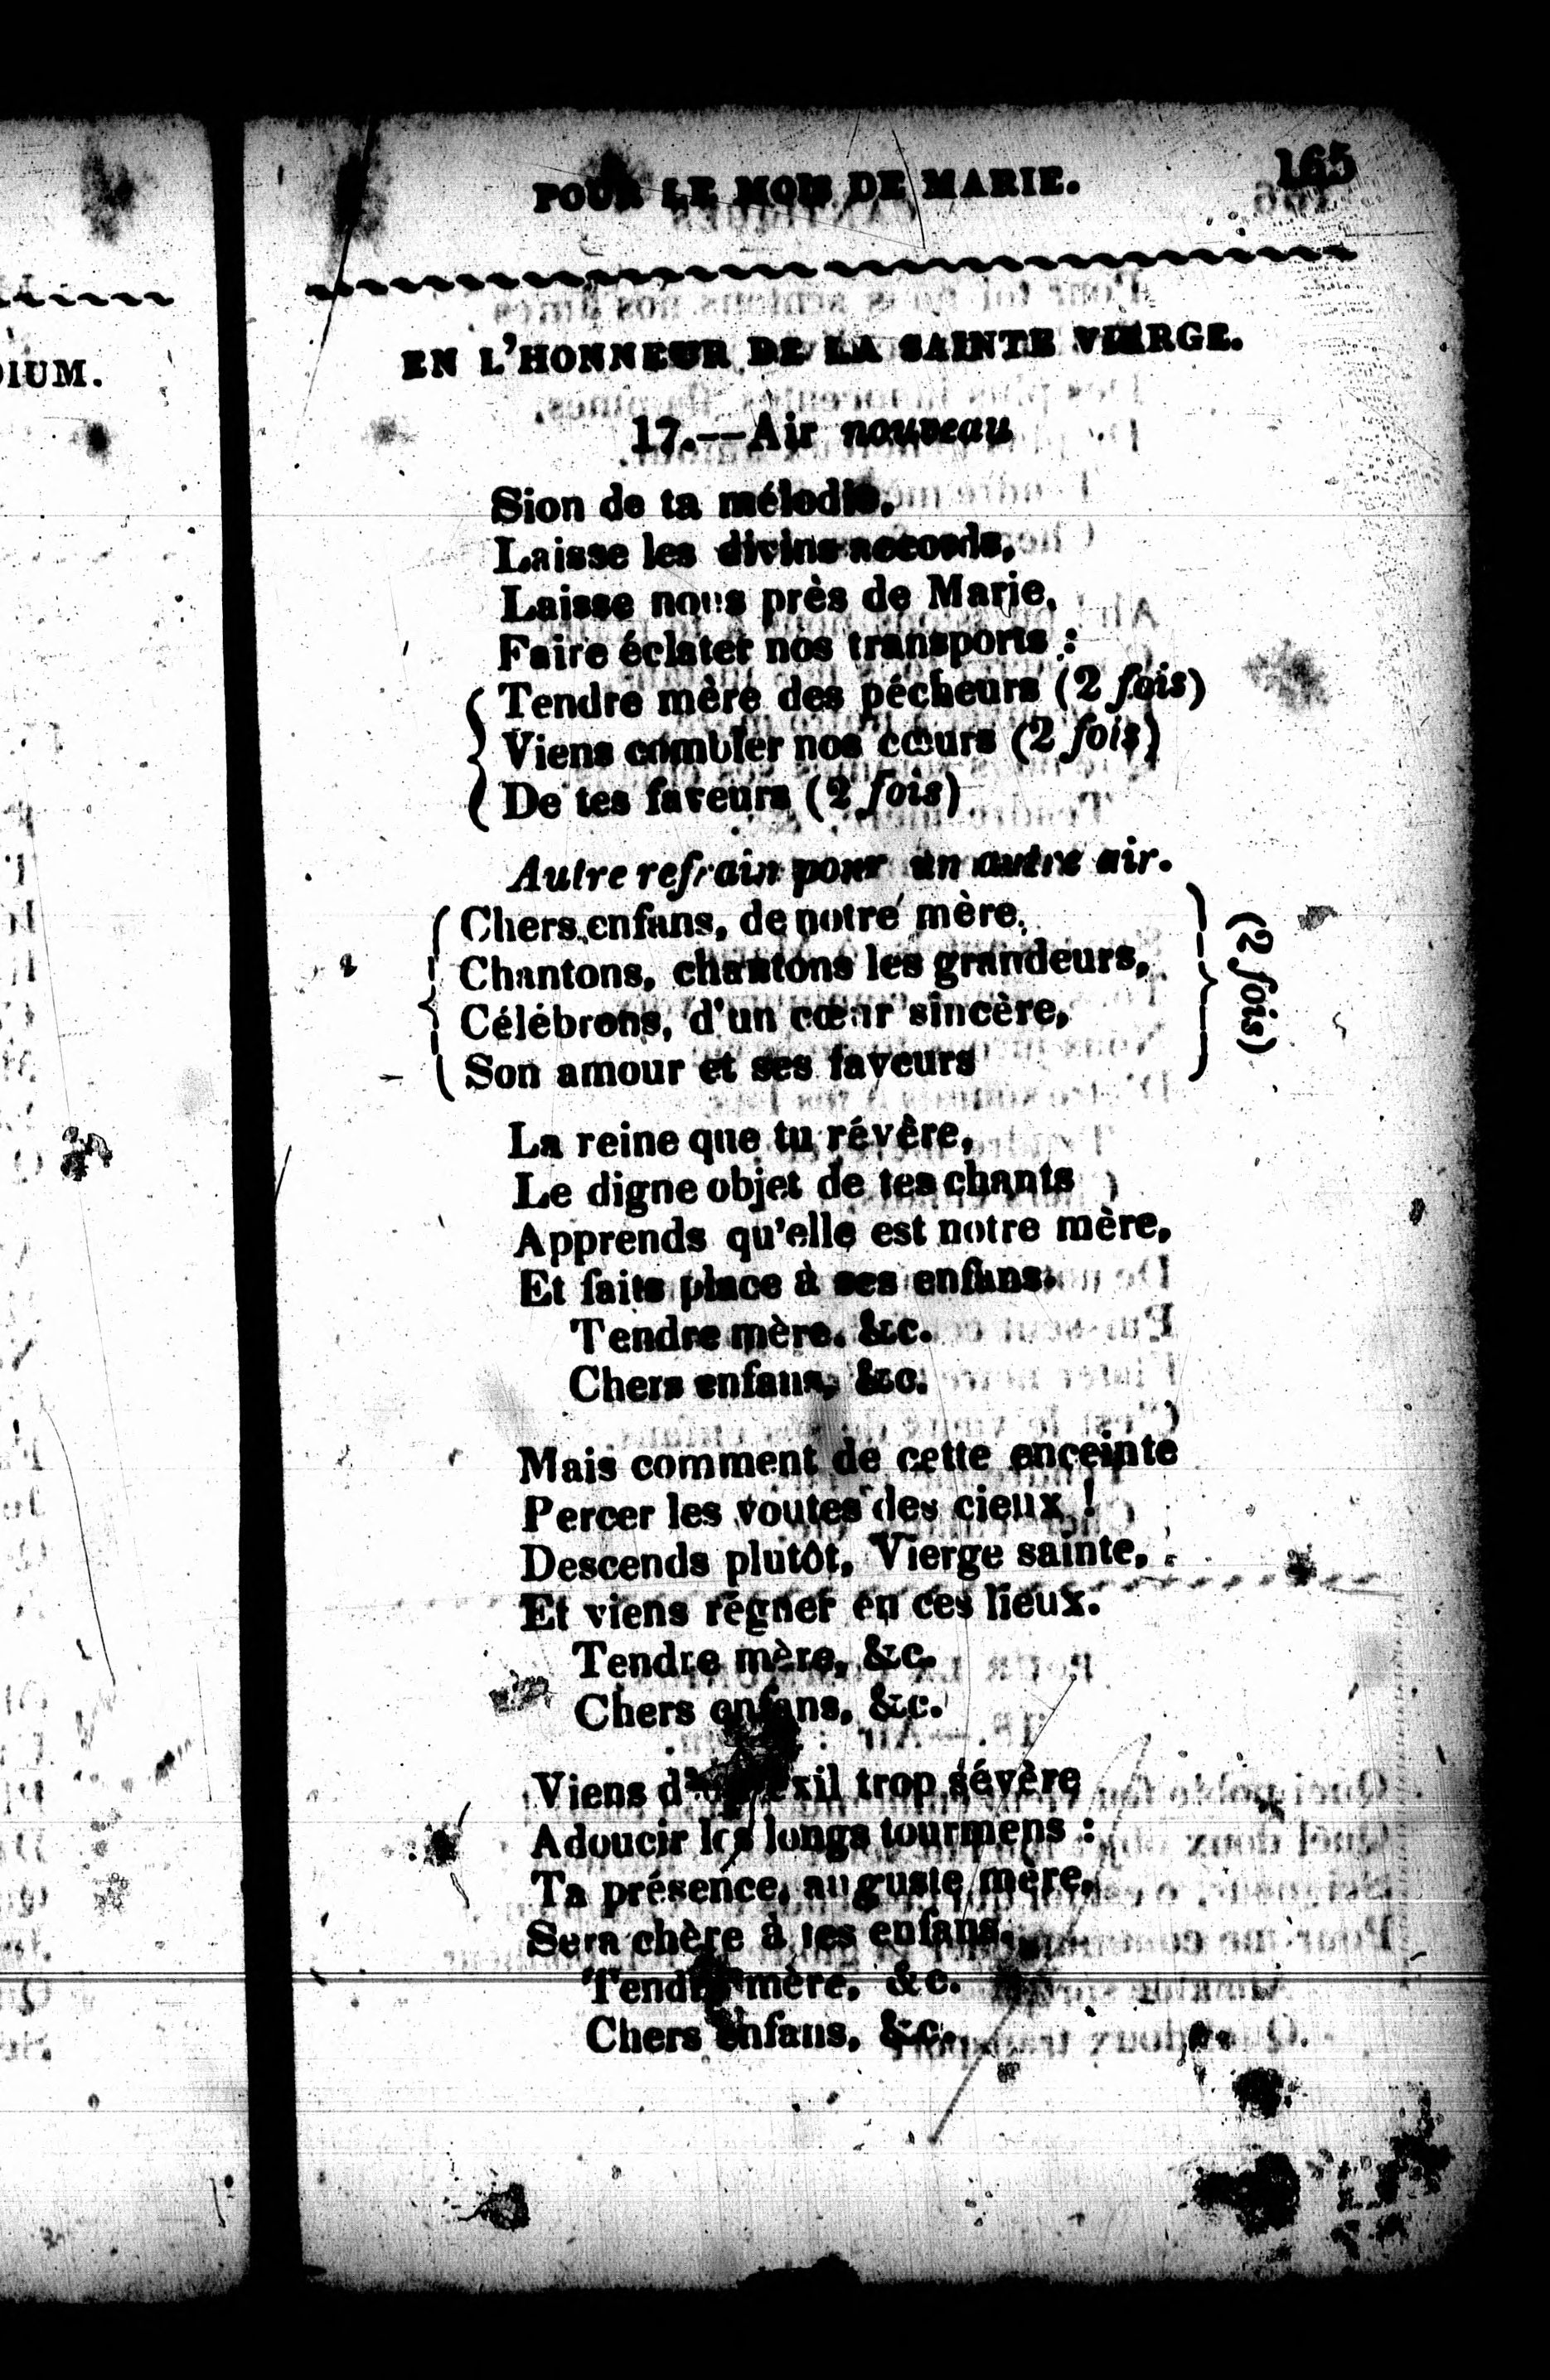 IUM.
POUR LE MOIS DE MARIE.
165
EN L'HONNEUR DE LA SAINTE VIERGE.
17.--Air nouveau
Sion de ta mélodie,
Laisse les divins accords,
Laisse nous près de Marie,
Faire éclater nos transports :
Tendre mère des pécheurs (2 fois)
Viens combler nos cœurs (2 fois)
De tes faveurs (2 fois)
Autre refrain pour un autre air.
Chers enfans, de notre mère,
Chantons, chantons les grandeurs,
Célébrons, d'un cœur sincère,
Son amour et ses faveurs
(2 fois)
La reine que tu révère,
Le digne objet de tes chants
Apprends qu'elle est notre mère,
Et faits place à ses enfans.
Tendre mère, &c.
Chers enfans, &c.
Mais comment de cette enceinte
Percer les voutes des cieux !
Descends plutôt, Vierge sainte,
Et viens régner en ces lieux.
Tendre mère, &c.
Chers enfans, &c.
Viens d'un exil trop sévère
Adoucir les longs tourmens :
Ta présence, auguste mère,
Sera chère à tes enfans.
Tendre mère, &c.
Chers enfans, &c.